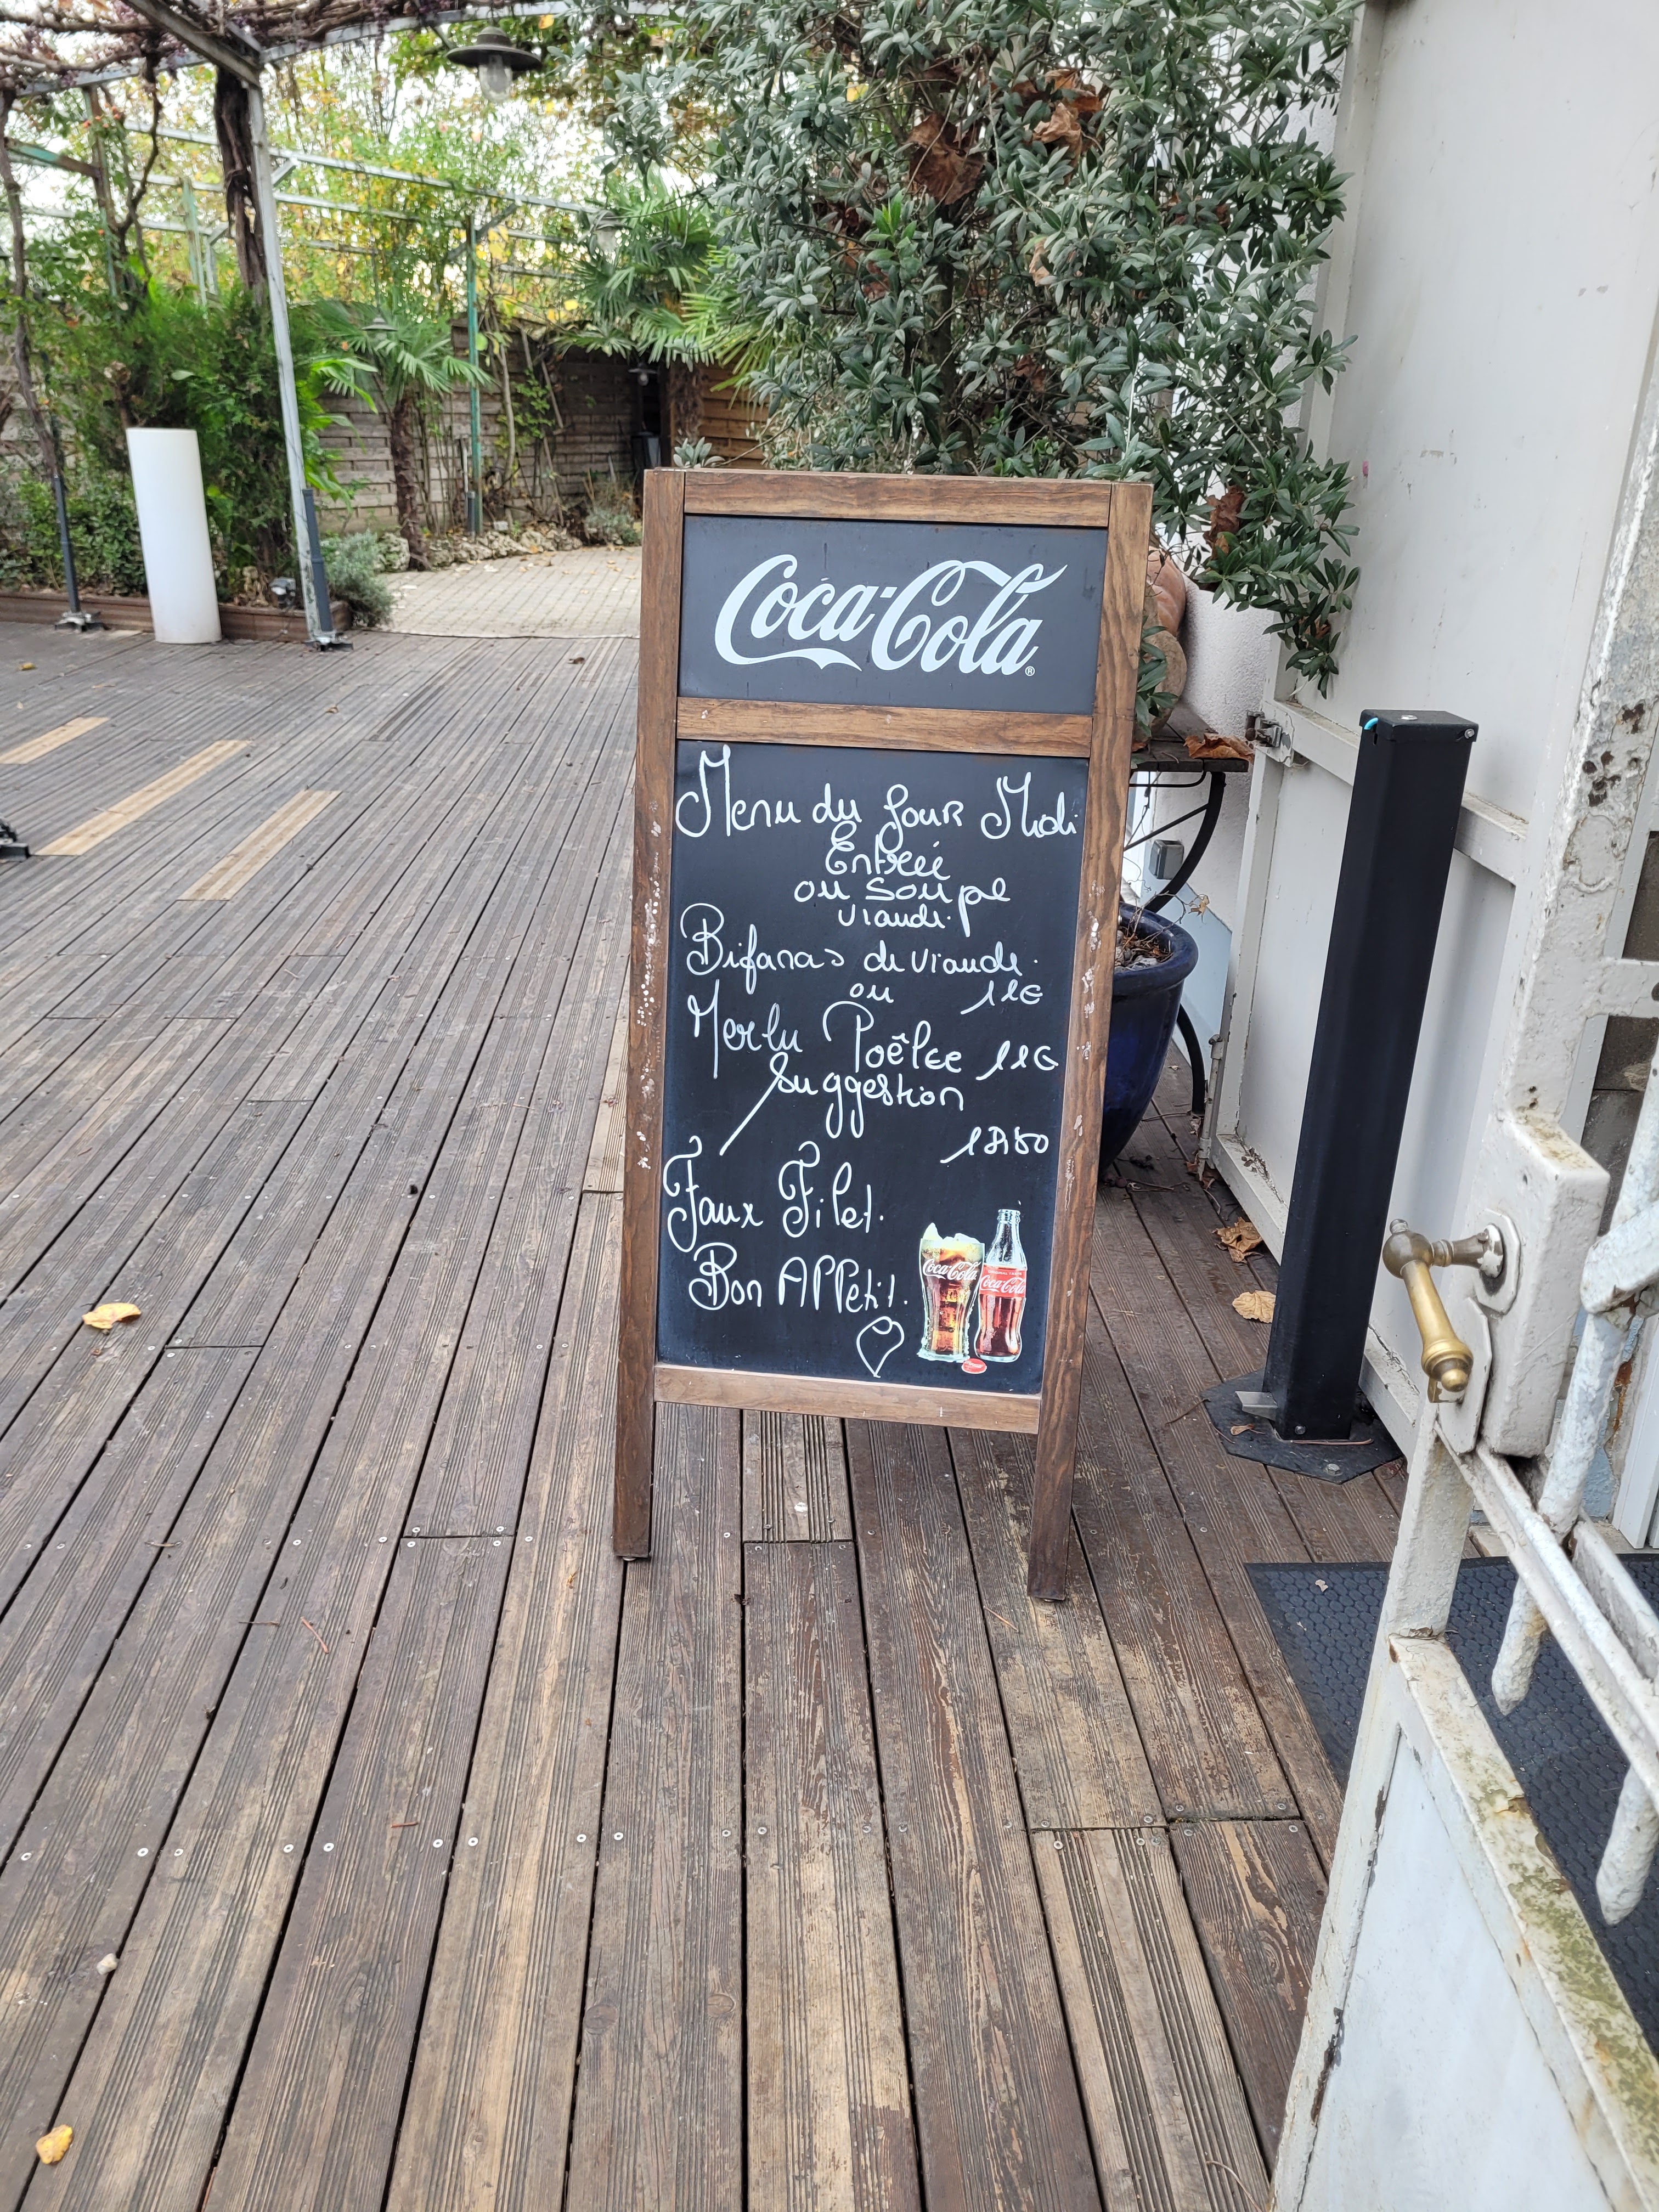 Coca-Cola®
Menu du jour Midi
Entreé
ou Soupe
viande.
Bifanas de viande.
ou 11€
Merlu Poêlee 11€
Suggestion
Faux Filet.
Bon APPetit.
Coca-Cola
Coca-Cola